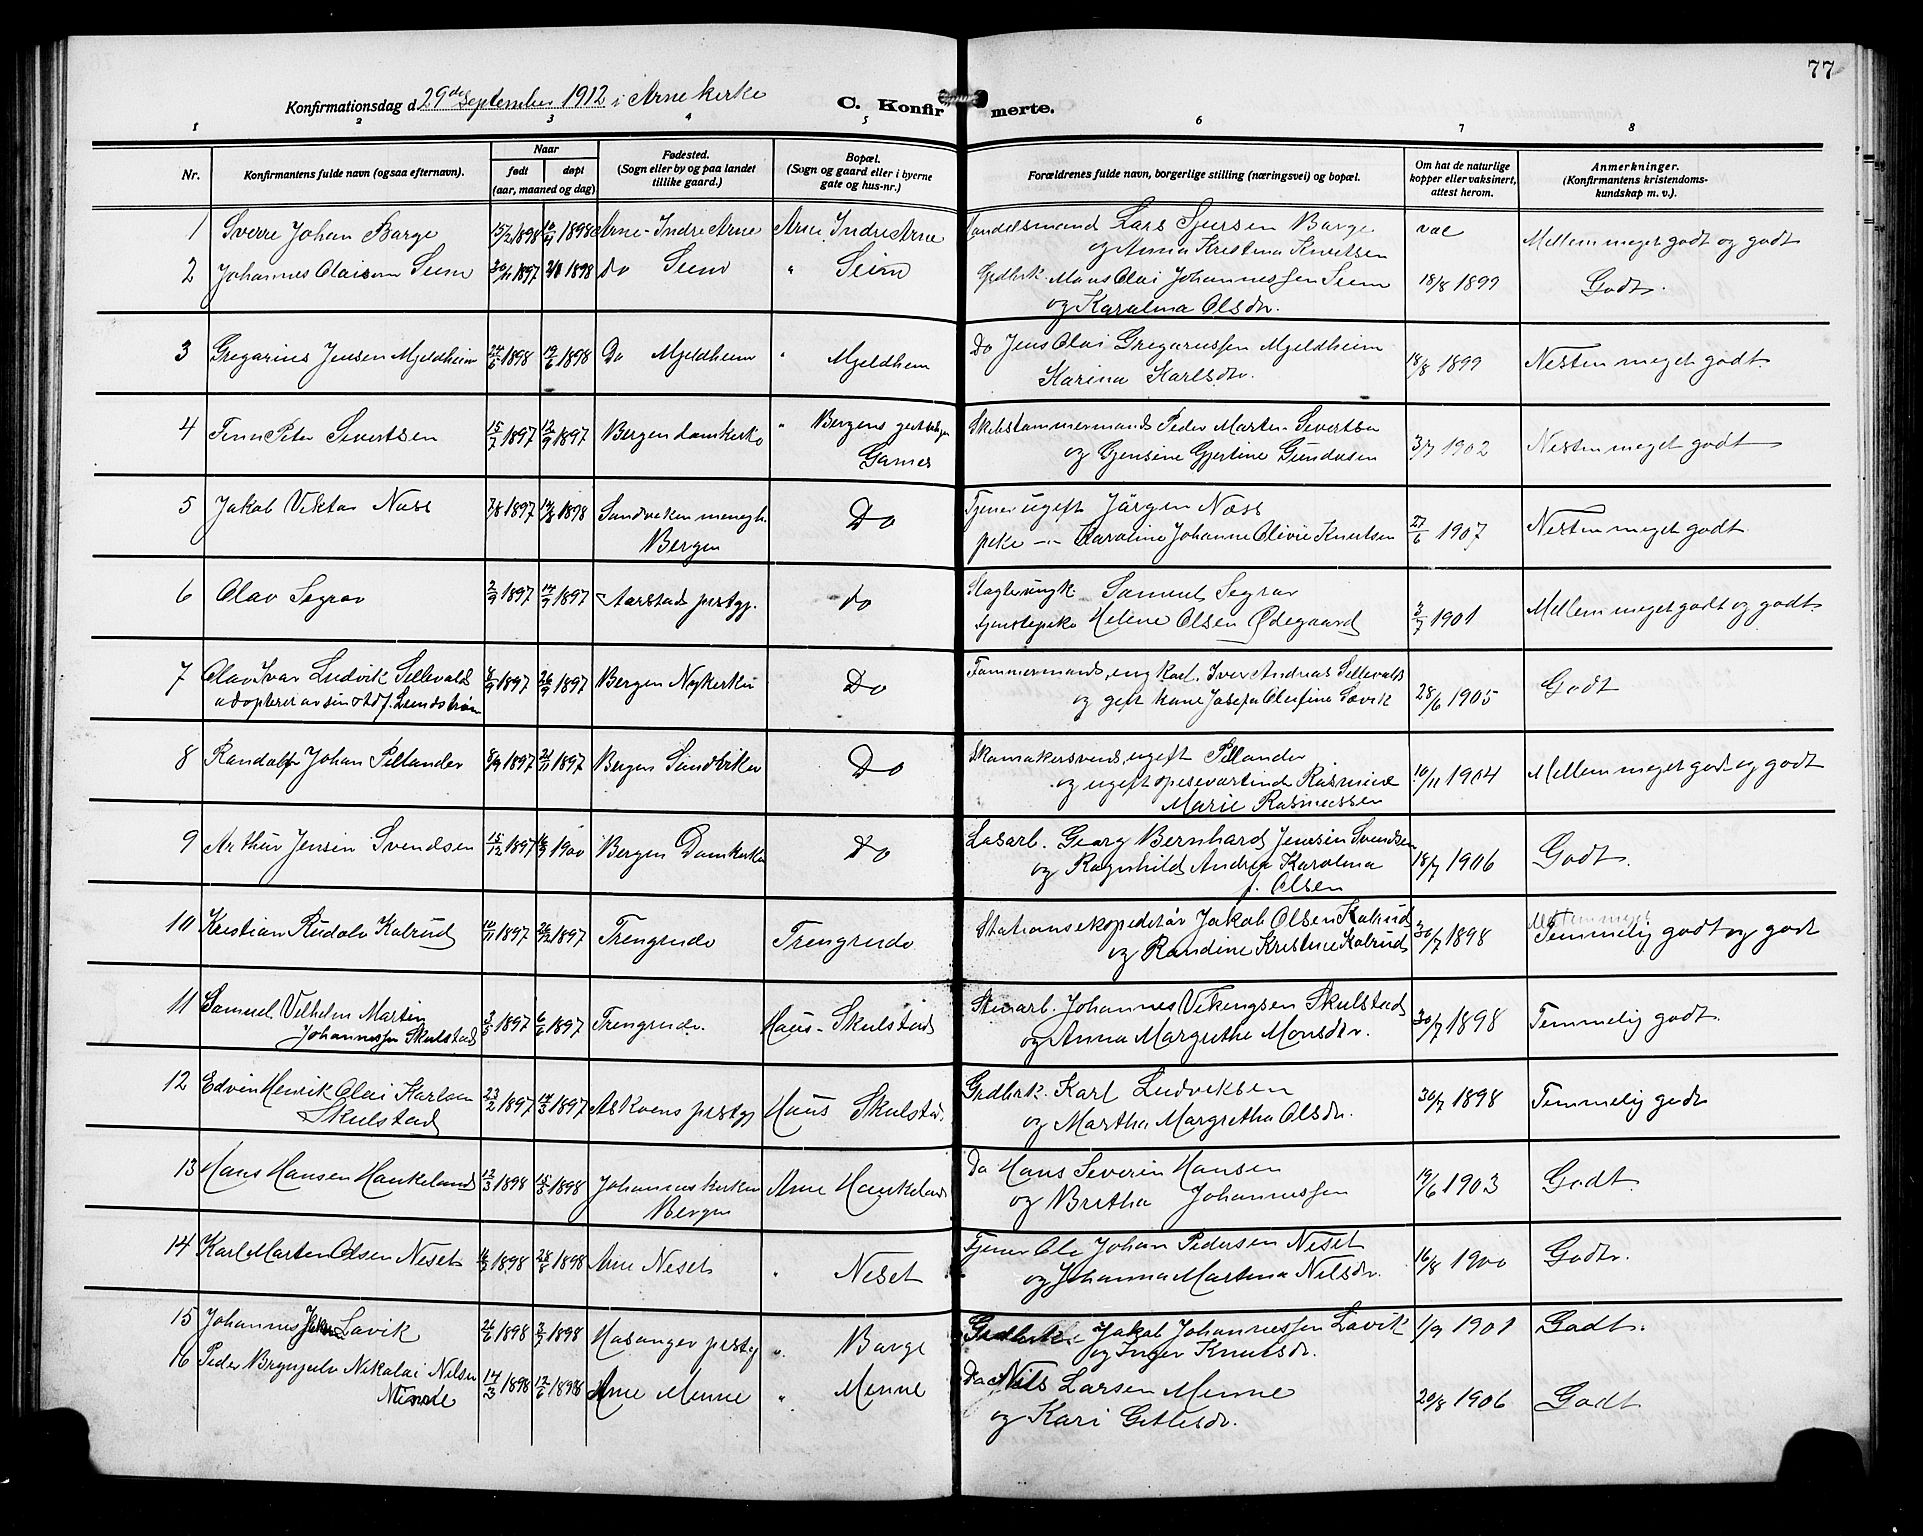 77
Konfirmationsdag d. 29de September 1912 i Arne kirke
C. Konfirmerte.
1 2 3 4 5 6 7 8
Nr. Konfirmantens fulde navn (ogsaa efternavn). Naar født døpt (aar, maaned og dag) Fødested. (Sogn eller by og paa landet tillike gaard.) Bopæl. (Sogn og gaard eller i byerne gate og hus-nr.) Forældrenes fulde navn, borgerlige stilling (næringsvei) og bopæl. Om hat de naturlige kopper eller vaksinert, attest herom. Anmerkninger. (Konfirmantens kristendomskundskap m. v.)
1 Sverre Johan Barge 15/2 1898 1898 Arne - Indre Arne Arne. Indre Arne Handelsmand Lars Sjursen Barge vac Mellem meget godt og godt
og Anna Kristina Knutsen
2 Johannes Olaisen Seim 30/11 1897 1898 do Seim " Seim Grdbrk. Mons Olai Johannessen Seim 18/8 1899 Godt.
og Karolina Olsdr.
3 Gregarius Jensen Mjeldheim 24/5 1898 19/6 1898 Do Mjeldheim " Mjeldheim Do Jens Olai Gregariussen Mjeldheim 18/8 1899 Nesten meget godt.
Karina Karlsdr.
4 Finn Peter Severtsen 15/7 1897 12/9 1897 Bergen domkirke " Bergens
Garnes Skibstømmermand Peder Martin Severtsen 3/7 1902 Nesten meget godt
og Gjensine Gjertine Gundesen
5 Jakob Viktor Næss 7/8 1897 14/8 1898 Sandviken menegh. Do Tjener ugift Jörgen Næss 27/6 1907 Nesten meget godt
Bergen pike -"- Karoline Johanne Olivie Knutsen
6 Olav Segrov 2/9 1897 14/9 1897 Aarstad prstgj. do Samuel Segrov 3/7 1901 Mellem meget godt og godt
tjenstepike Helene Olsen Ødegaard
7 Olav Ivar Ludvik Sellevold 4/9 1897 26/9 1897 Bergen Nykirken Do Tømmermand, ungkarl. Iver Andreas Sellevold 28/6 1905 Godt
adopteret av sin Lundström og gift kone Josefa Olufine Sævik
8 Randolf Johan Pellander 8/9 1897 21/11 1897 Bergen Sandviken Do Skomakersvend, ugift Pellander 10/11 1904 Mellem meget godt og godt
og ugift opisevartind Rasmine
Marie Rasmussen
9 Arthur Jensen Svendsen 15/12 1897 1900 Bergen Domkirken Do Løsarb. Georg Bernhard Jensen Svendsen 18/7 1906 Godt.
og Ragnhild Andrea Karolina
f. Olsen
10 Kristian Rudolv Kolrud 10/11 1897 26/12 1897 Trengreide Trengreide Stationsekspeditør Jakob Olsen Kolrud 30/7 1898 Temmelig godt og godt
og Randine Kristine Kolrud
11 Samuel Vilhelm Martin 3/5 1897 6/6 1897 Trengreide. Haus - Skulstad Stenarb. Johannes Vikingsen Skulstad 30/7 1898 Temmelig godt.
Johannessen Skulstad og Anna Margrethe Monsdr.
12 Edvin Henrik Olai Karlsen 23/2 1897 14/3 1897 Askøens prstgj Haus Skulstad. Grdbrk. Karl Ludviksen 30/7 1898 Temmelig godt
Skulstad og Martha Margretha Olsdr.
13 Hans Hansen Haukeland 12/3 1898 15/5 1898 Johanneskirken Arne Haukeland Do Hans Severin Hansen 19/6 1903 Godt.
Bergen og Britha Johannessen
14 Karl Martin Olsen Neset 16/3 1898 28/8 1898 Arne Neset " Neset Tjener Ole Johan Pedersen Neset 16/8 1900 Godt.
og Johanna Martina Nilsdr.
15 Johannes Lavik 26/6 1898 3/7 1898 Hosanger prstgj " Barge Jakob Johannessen Lavik 1/9 1901 Godt.
og Inger Knutsdr.
16 Peder Brynjulv Nikolai Nilsen 14/3 1898 12/6 1898 Arne Menne " Menne Do Nils Larsen Menne 20/8 1906 Godt
og Kari Gitlesdr.